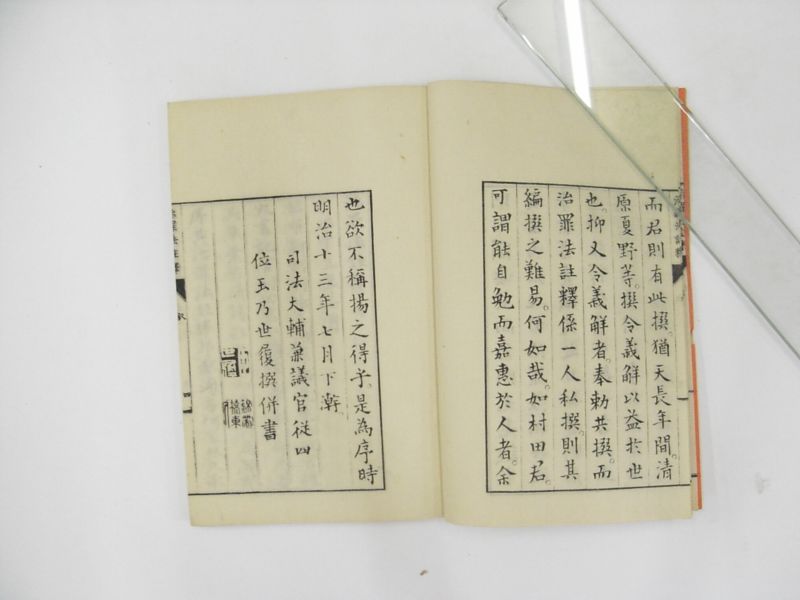 而君則有此撰。猶天長年間。清
原夏野等。撰令義解以益於世
也。抑又令義解者。奉勅共撰。而
治罪法註釋係一人私撰。則其
編撰之難易。何如哉。如村田君。
可謂能自勉而嘉惠於人者。余
也欲不稱揚之得乎。是為序時
明治十三年七月下澣
司法大輔兼議官從四
位玉乃世履撰併書